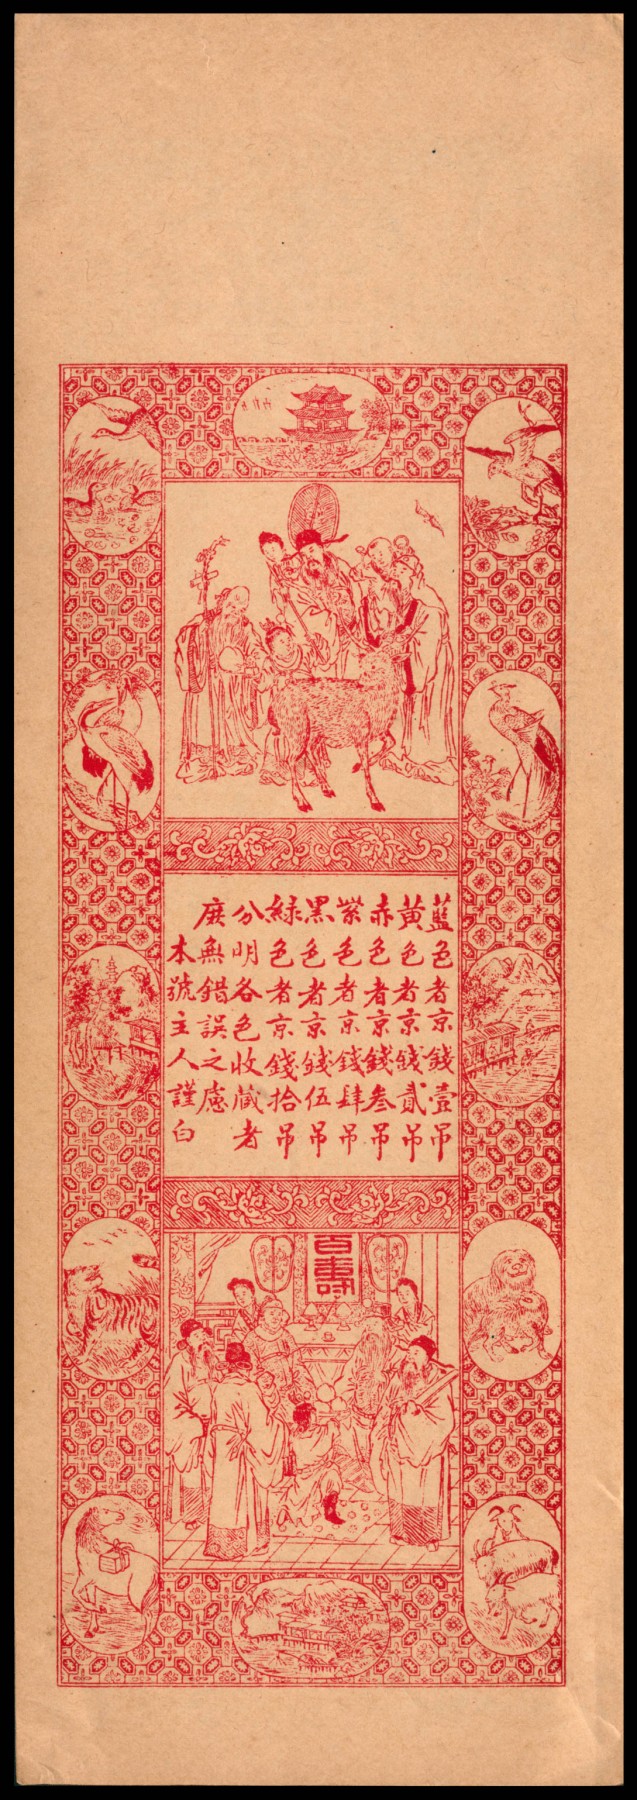 藍色者京錢壹吊
黃色者京錢貳吊
赤色者京錢叁吊
紫色者京錢肆吊
黑色者京錢伍吊
綠色者京錢拾吊
分明各色收藏者
庶無錯誤之慮
本號主人謹白
百壽